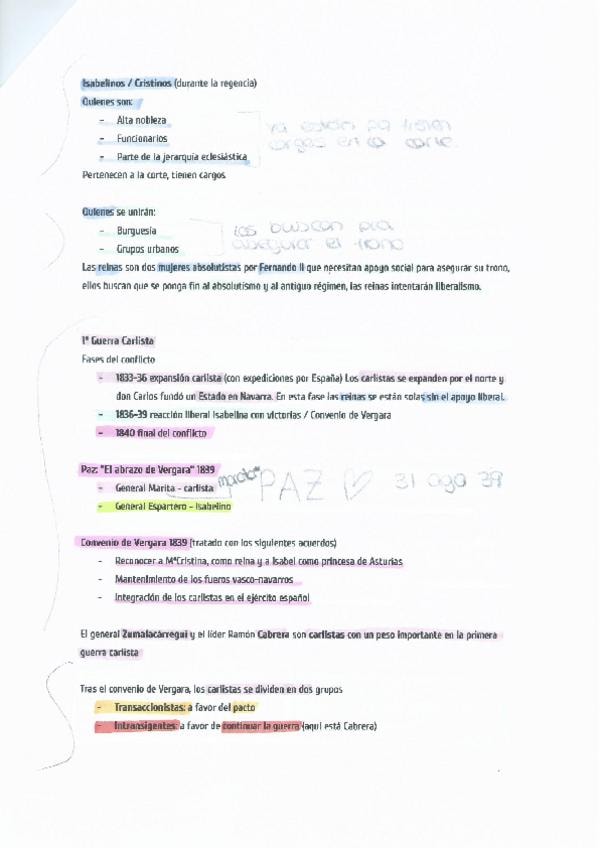 Isabelinos / Cristinos (durante la regencia)
Quienes son:
- Alta nobleza
- Funcionarios
- Parte de la jerarquía eclesiástica
ya están pq tienen
cargos en la corte.
Pertenecen a la corte, tienen cargos
Quienes se unirán:
- Burguesía
- Grupos urbanos
los buscan pra
asegurar el trono
Las reinas son dos mujeres absolutistas por Fernando II que necesitan apoyo social para asegurar su trono,
ellos buscan que se ponga fin al absolutismo y al antiguo régimen, las reinas intentarán liberalismo.
1ª Guerra Carlista
Fases del conflicto
- 1833-36 expansión carlista (con expediciones por España) Los carlistas se expanden por el norte y
don Carlos fundó un Estado en Navarra. En esta fase las reinas se están solas sin el apoyo liberal.
- 1836-39 reacción liberal Isabelina con victorias / Convenio de Vergara
- 1840 final del conflicto
Paz: "El abrazo de Vergara" 1839
- General Marita - carlista
- General Espartero - Isabelino
PAZ 31 ago 39
Convenio de Vergara 1839 (tratado con los siguientes acuerdos)
- Reconocer a MªCristina, como reina y a Isabel como princesa de Asturias
- Mantenimiento de los fueros vasco-navarros
- Integración de los carlistas en el ejército español
El general Zumalacárregui y el líder Ramón Cabrera son carlistas con un peso importante en la primera
guerra carlista
Tras el convenio de Vergara, los carlistas se dividen en dos grupos
- Transaccionistas: a favor del pacto
- Intransigentes: a favor de continuar la guerra (aquí está Cabrera)